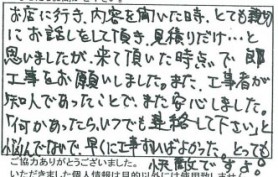 お店に行き、内容を聞いた時、とても親切
にお話しをして頂き、見積りだけ…と
思いましたが、来て頂いた時点で即
工事をお願いしました。また、工事者が
知人であったことで、また安心しました。
「何かあったら、いつでも連絡して下さい」と
悩んでないで、早くに工事すればよかった。とっても
快適ですよ。
ご協力ありがとうございました。
いただきました個人情報は目的以外には使用致しません